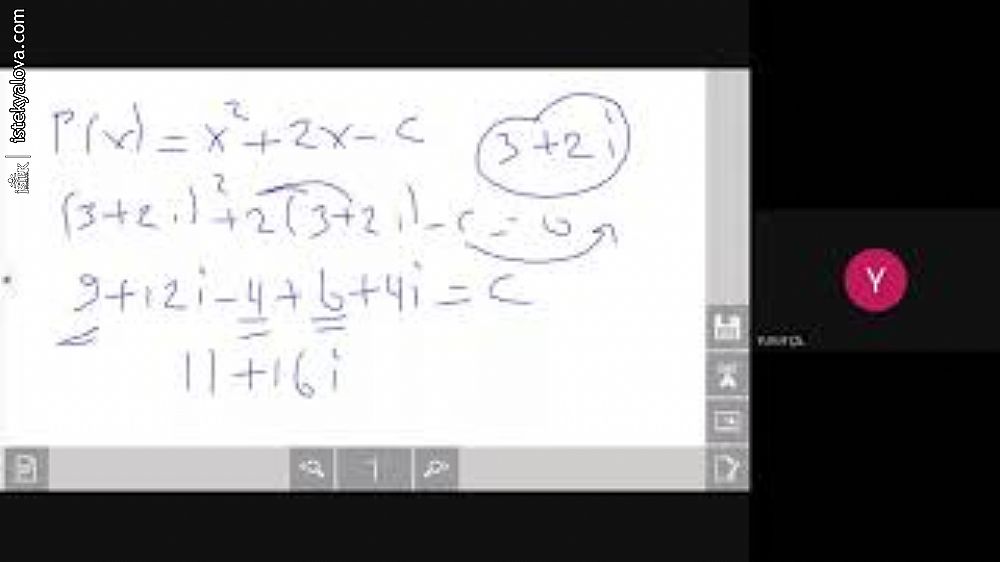 P(x) = x² + 2x - c
3 + 2i
(3+2i)² + 2(3+2i) - c = 0
9 + 12i - 4 + 6 + 4i = c
11 + 16i
Y
istek | istekyalova.com